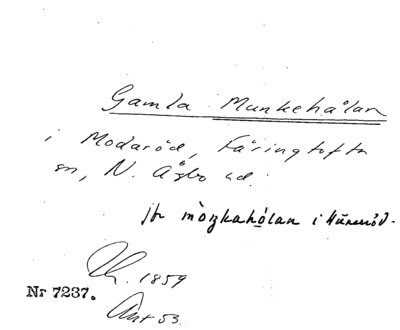 Gamla Munkehålan
i Modaröd, Färingtofta
sn, N. Åsbo hd.
jfr mòŋkahólan i
Lh. 1859
Nr 7237.
Ant 53